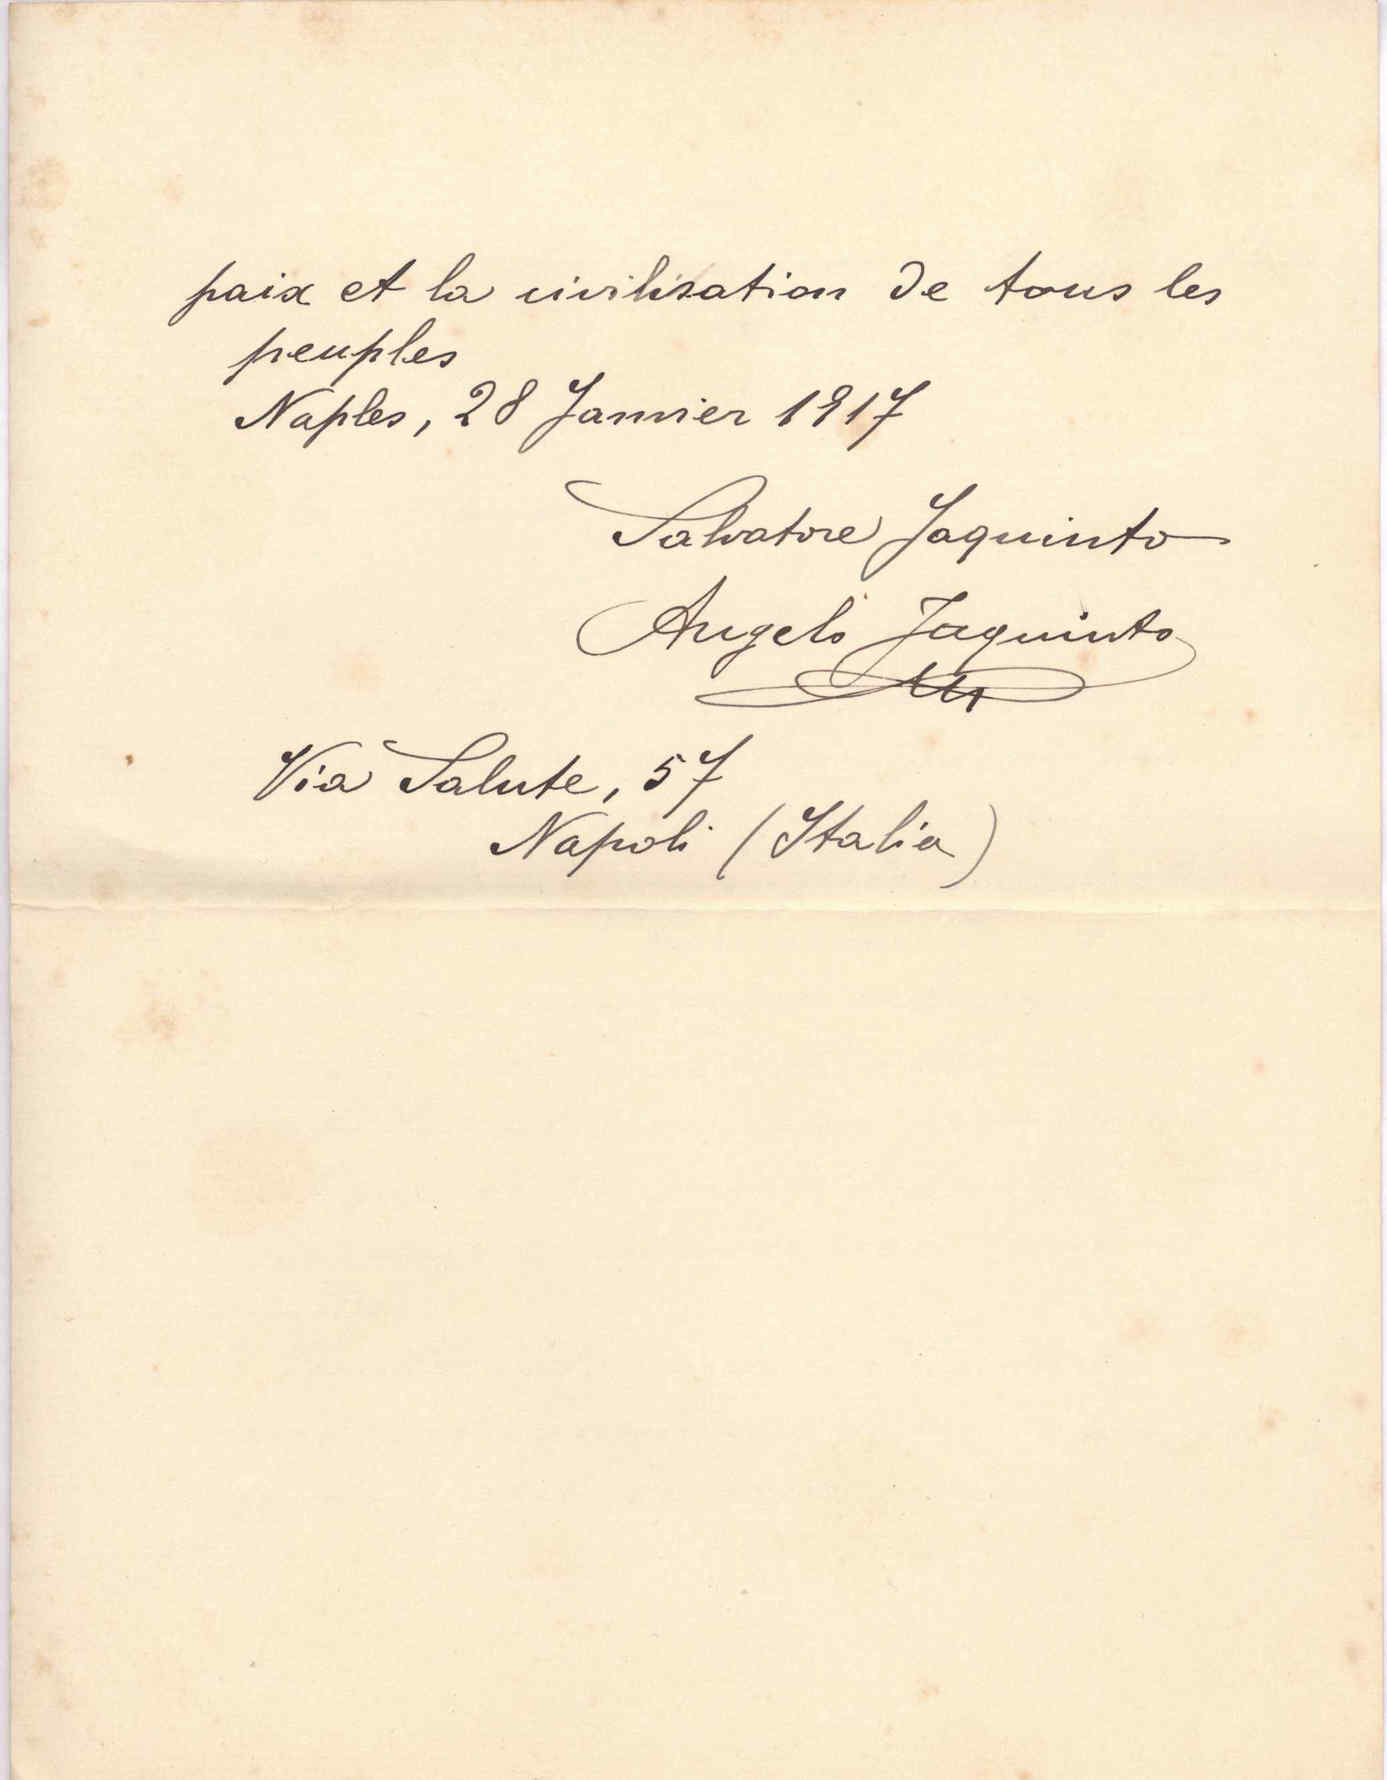 paix et la civilisation de tous les
peuples
Naples, 28 Janvier 1917
Salvatore Jaquinto
Angelo Jaquinto
Via Salute, 57
Napoli (Italia)